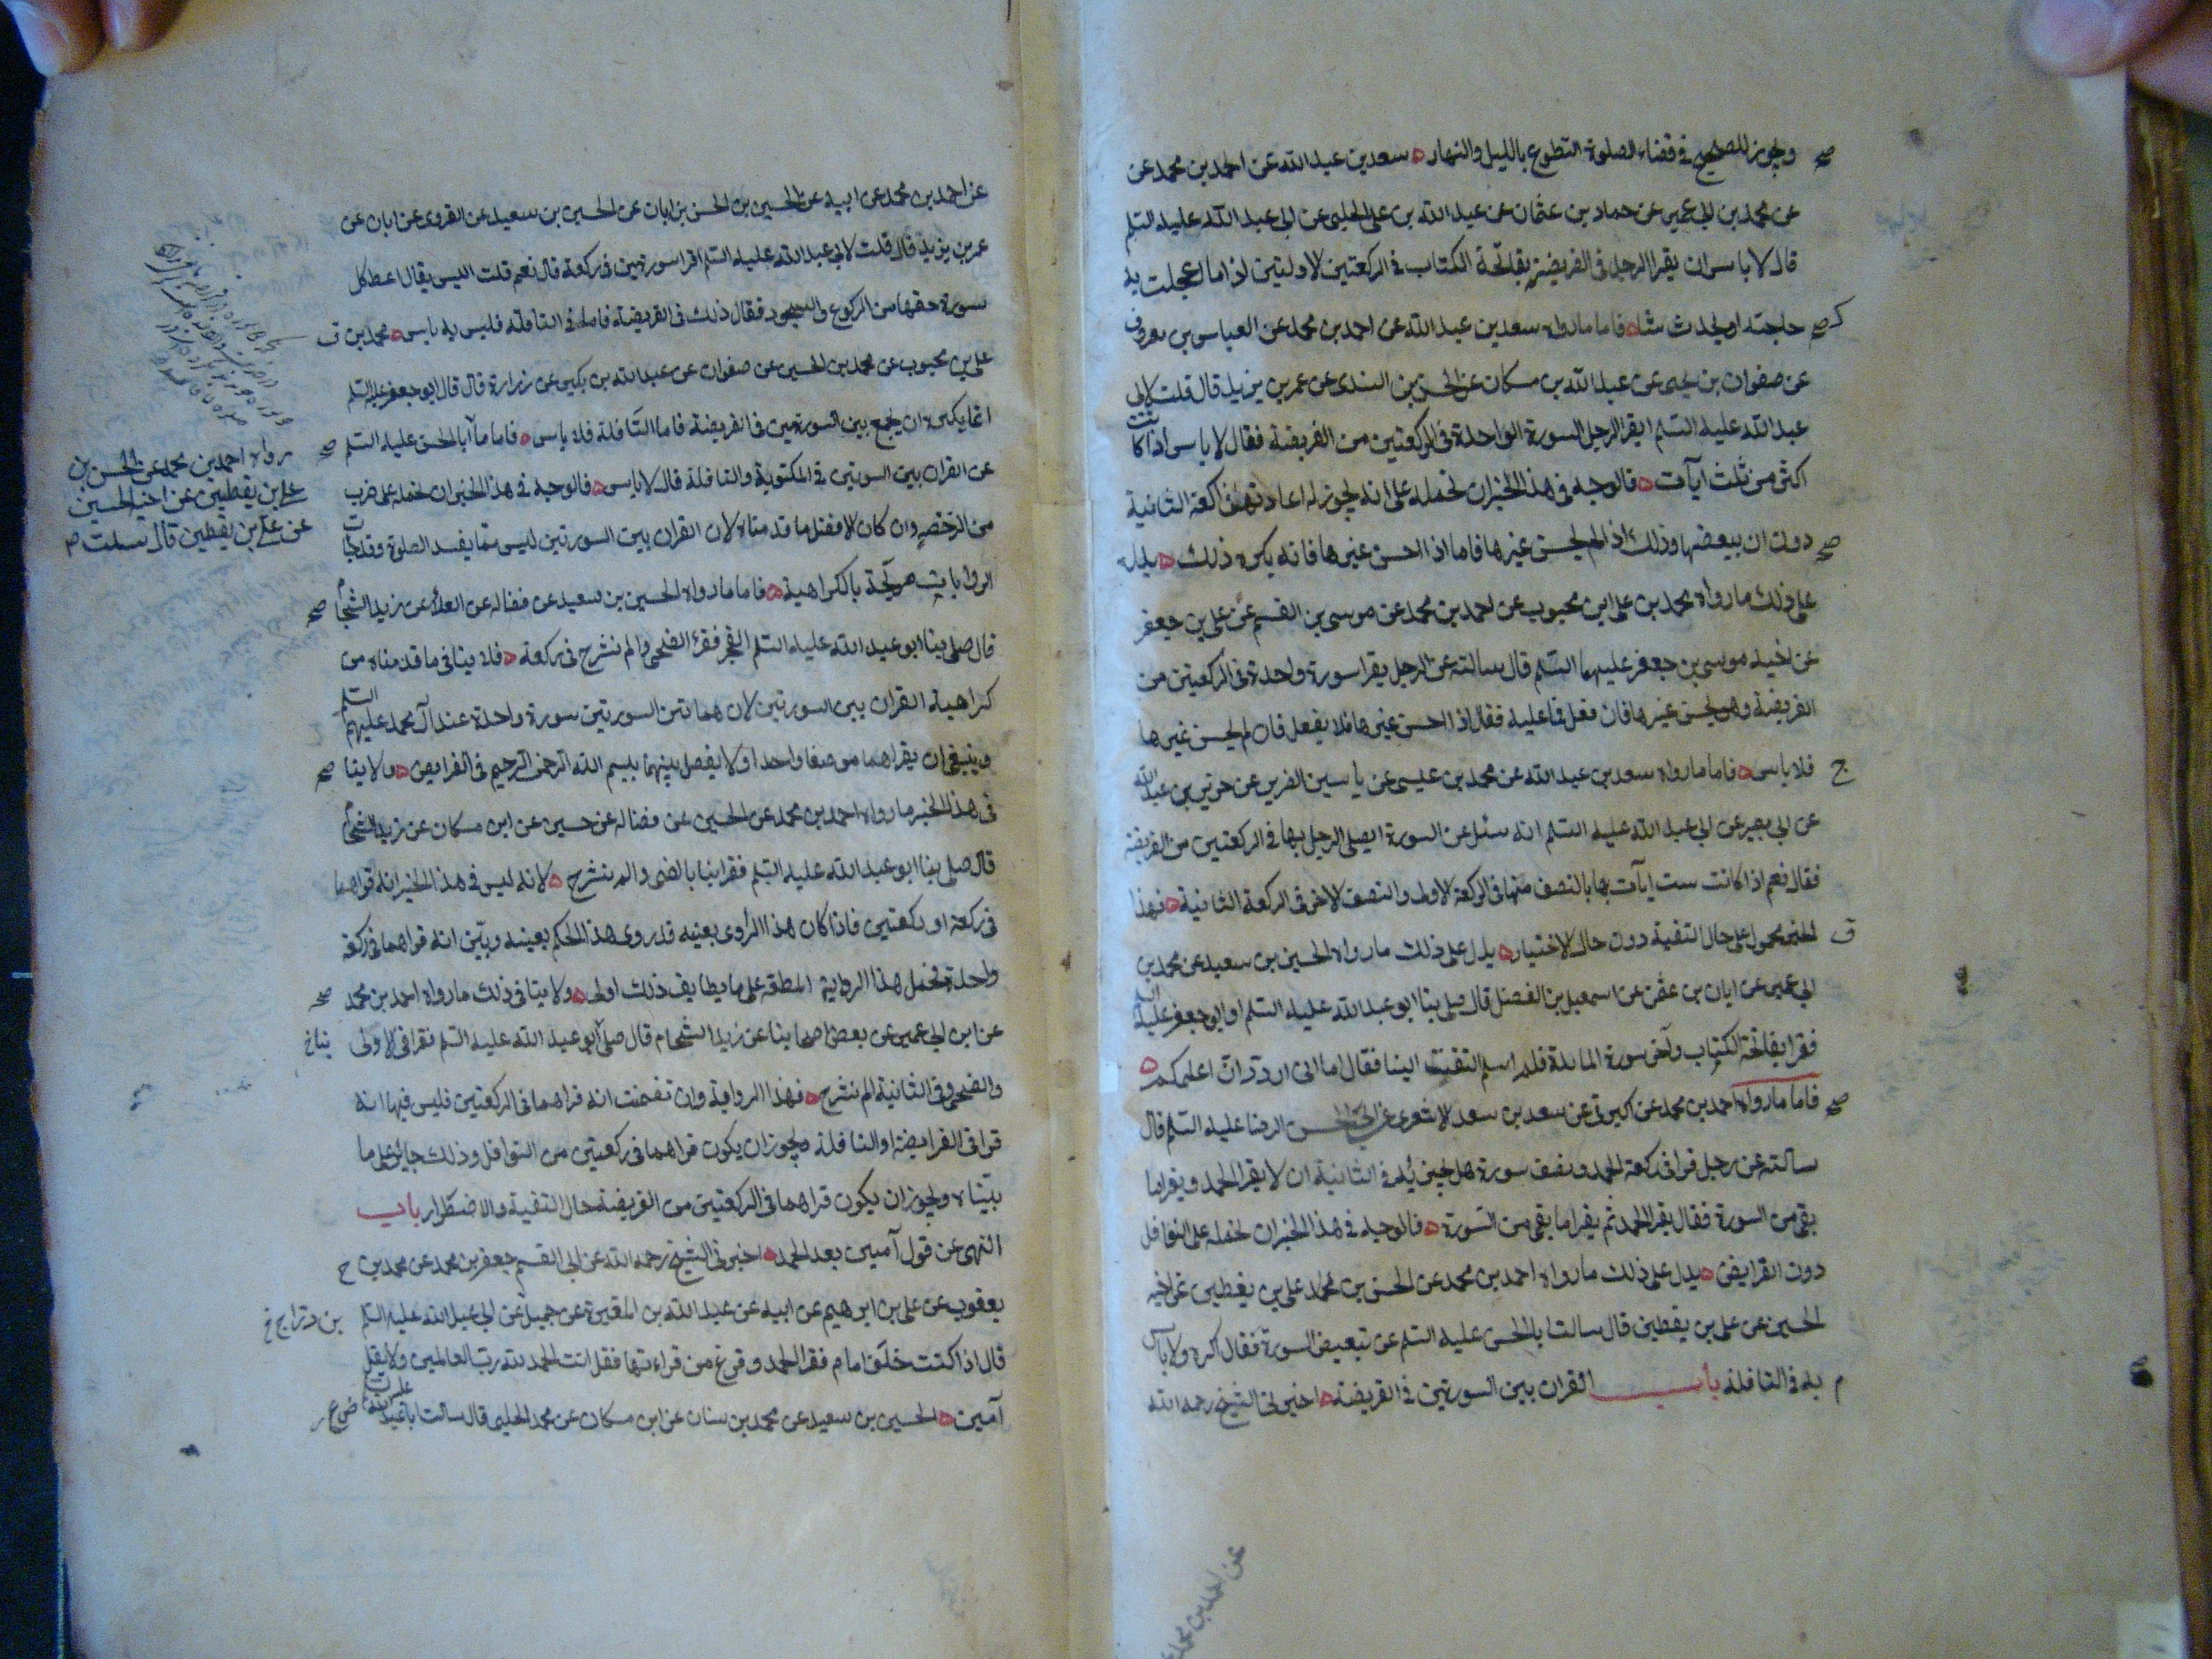 ويجوز للصحيح في قضاء الصلوة التطوع بالليل والنهار ه سعد بن عبد الله عن احمد بن محمد عن
عن محمد بن ابي عمير عن حماد بن عثمان عن عبيد الله بن علي الحلبي عن ابي عبد الله عليه السلم
قال لا باس ان يقرا الرجل في الفريضة بفاتحة الكتاب في الركعتين الاولتين اذا ما اعجلت به
حاجته او يحدث شئا ه فاما ما رواه سعد بن عبد الله عن احمد بن محمد عن العباس بن معروف
عن صفوان بن يحيى عن عبد الله بن مسكان عن الحسن بن السندى عن عمر بن يزيد قال قلت لابي
عبد الله عليه السلم ايقرا الرجل السورة الواحدة في الركعتين من الفريضة فقال لا باس اذا كانت
اكثر من ثلث آيات ه فالوجه في هذا الخبر ان نحمله على انه يجوز له اعادتها في ركعة الثانية
دون ان يبعضها وذلك اذا لم يحسن غيرها فاما اذا احسن غيرها فانه يكره ذلك ه يدل
على ذلك ما رواه محمد بن علي ابن محبوب عن احمد بن محمد عن موسى بن القسم عن علي بن جعفر
عن اخيه موسى بن جعفر عليهما السلم قال سالته عن الرجل يقرا سورة واحدة في الركعتين من
الفريضة وهو يحسن غيرها فان فعل فما عليه فقال اذا احسن غيرها فلا يفعل فان لم يحسن غيرها
فلا باس ه فاما ما رواه سعد بن عبد الله عن محمد بن عيسى عن ياسين الضرير عن حريز بن عبد الله
عن ابي بصير عن ابي عبد الله عليه السلم انه سئل عن السورة ايصلى الرجل بها في الركعتين من الفريضة
فقال نعم اذا كانت ست ايآت بها بالنصف منها في الركعة الاولى والنصف الاخر في الركعة الثانية ه فهذا
الخبر محمول على حال التقية دون حال الاختيار ه يدل على ذلك ما رواه الحسين بن سعيد عن محمد بن
ابي عمير عن ابان بن عثمن عن اسمعيل بن الفضل قال صلى بنا ابو عبد الله عليه السلم او ابو جعفر عليه السلم
فقرا بفاتحة الكتاب وآخر سورة المائدة فلما سلم التفت الينا فقال اما انى اردت ان اعلمكم ه
فاما ما رواه احمد بن محمد عن البرقي عن سعد بن سعد الاشعرى عن ابي الحسن الرضا عليه السلم قال
سالته عن رجل قرا في ركعة الحمد ونصف سورة هل يجزئه في الثانية ان لا يقرا الحمد ويقرا ما
بقى من السورة فقال يقرا الحمد ثم يقرا ما بقي من السورة ه فالوجه في هذا الخبر ان نحمله على النوافل
دون الفرايض ه يدل على ذلك ما رواه احمد بن محمد عن الحسن بن محمد علي بن يقطين عن اخيه
الحسين عن علي بن يقطين قال سالت ابا الحسن عليه السلم عن تبعيض السورة فقال اكره ولا باس
به في النافلة باب القران بين السورتين في الفريضة ه اخبرني الشيخ رحمه الله
عن احمد بن محمد
عن احمد بن محمد عن ابيه عن الحسين بن الحسن بن ابان عن الحسين بن سعيد عن القروى عن ابان عن
عمر بن يزيد قال قلت لابي عبد الله عليه السلم اقرا سورتين في ركعة قال نعم قلت اليس يقال اعط كل
سورة حقها من الركوع والسجود فقال ذلك في الفريضة فاما في النافلة فليس به باس ه محمد بن
علي بن محبوب عن محمد بن الحسين عن صفوان عن عبد الله بن بكير عن زرارة قال قال ابو جعفر عليه السلم
انما يكره ان يجمع بين السورتين في الفريضة فاما النافلة فلا باس ه فاما ما ابا الحسن عليه السلم
رواه احمد بن محمد عن الحسن بن
علي بن يقطين عن اخيه الحسين
عن علي بن يقطين قال سالت
عن القران بين السورتين في المكتوبة والنافلة قال لا باس ه فالوجه في هذا الخبر ان نحمله على ضرب
من الرخصة وان كان الافضل ما قدمناه لان القران بين السورتين ليس مما يفسد الصلوة وقد جاءت
الروايات صريحة بالكراهية ه فاما ما رواه الحسين بن سعيد عن فضالة عن العلاء عن زيد الشحام
قال صلى بنا ابو عبد الله عليه السلم الفجر فقرا الضحى والم نشرح في ركعة ه فلا ينافى ما قدمناه من
كراهية القران بين السورتين لان هاتين السورتين سورة واحدة عند آل محمد عليهم السلم
وينبغي ان يقراهما موضعا واحدا ولا يفصل بينهما ببسم الله الرحمن الرحيم في الفرايض ه ولا ينا
في هذا الخبر ما رواه احمد بن محمد عن الحسين عن فضالة عن حسين عن ابن مسكان عن زيد الشحام
قال صلى بنا ابو عبد الله عليه السلم فقرا بنا بالضحى والم نشرح ه لانه ليس في هذا الخبر انه قراهما
في ركعة او ركعتين فاذا كان هذا الراوى بعينه قد روى هذا الحكم بعينه وبين انه قراهما في ركعة
واحدة فحمل هذا الرواية المطلقة على ما يطابق ذلك اولى ه ولا ينافى ذلك ما رواه احمد بن محمد
عن ابن ابي عمير عن بعض اصحابنا عن زيد الشحام قال صلى ابو عبد الله عليه السلم فقرا في الاولى
والضحى وفي الثانية الم نشرح ه فهذا الرواية وان تضمنت انه قراهما في الركعتين فليس فيها انه
قرا في الفرايضة او النافلة ويجوز ان يكون قراهما في ركعتين من النوافل وذلك جائز على ما
بيناه ويجوز ان يكون قراهما في الركعتين من الفريضة حال التقية والاضطرار باب
النهى عن قول آمين بعد الحمد ه اخبرني الشيخ رحمه الله عن ابي القسم جعفر بن محمد عن محمد بن
يعقوب عن علي بن ابرهيم عن ابيه عن عبد الله بن المغيرة عن جميل عن ابي عبد الله عليه السلم
قال اذا كنت خلف امام فقرا الحمد وفرغ من قراءتها فقل انت الحمد لله رب العالمين ولا تقل
آمين ه الحسين بن سعيد عن محمد بن سنان عن ابن مسكان عن محمد الحلبي قال سالت ابا عبد الله عليه السلم